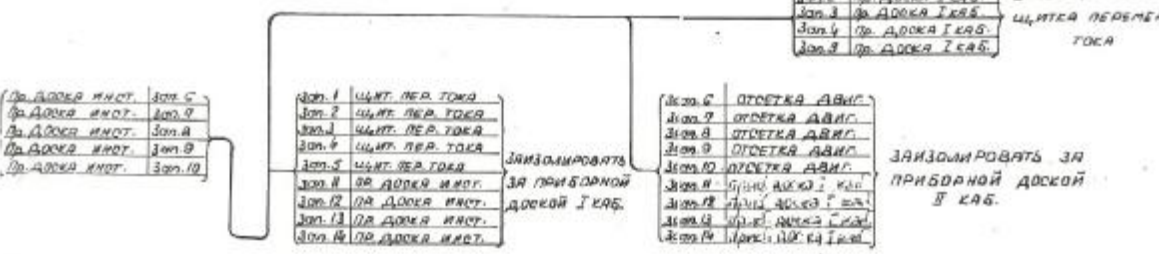 Зап. 3 Пр. ДОСКА I КАБ.
Зап. 4 Пр. ДОСКА I КАБ.
Зап. 9 Пр. ДОСКА I КАБ.
ЩИТКА ПЕРЕМЕН
ТОКА
Пр. ДОСКА ИНСТ. Зап. 6
Пр. ДОСКА ИНСТ. Зап. 7
Пр. ДОСКА ИНСТ. Зап. 8
Пр. ДОСКА ИНСТ. Зап. 9
Пр. ДОСКА ИНСТ. Зап. 10
Зап. 1 ЩИТ. ПЕР. ТОКА
Зап. 2 ЩИТ. ПЕР. ТОКА
Зап. 3 ЩИТ. ПЕР. ТОКА
Зап. 4 ЩИТ. ПЕР. ТОКА
Зап. 5 ЩИТ. ПЕР. ТОКА
Зап. 11 ПР. ДОСКА ИНСТ.
Зап. 12 ПР. ДОСКА ИНСТ.
Зап. 13 ПР. ДОСКА ИНСТ.
Зап. 14 ПР. ДОСКА ИНСТ.
ЗАИЗОЛИРОВАТЬ
ЗА ПРИБОРНОЙ
ДОСКОЙ I КАБ.
Зап. 6 ОТСЕТКА ДВИГ.
Зап. 7 ОТСЕТКА ДВИГ.
Зап. 8 ОТСЕТКА ДВИГ.
Зап. 9 ОТСЕТКА ДВИГ.
Зап. 10 ОТСЕТКА ДВИГ.
Зап. 11 ДОСКА I КАБ
Зап. 12 ДОСКА I КАБ
Зап. 13 ДОСКА I КАБ
Зап. 14 ДОСКА I КАБ
ЗАИЗОЛИРОВАТЬ ЗА
ПРИБОРНОЙ ДОСКОЙ
II КАБ.